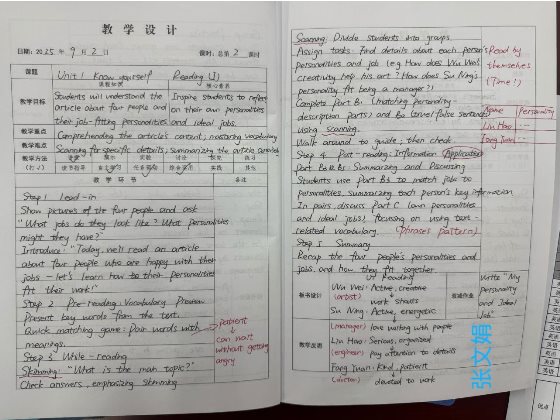 教 学 设 计
日期: 2025 年 9 月 2 日
课时: 总第 2 课时
课题
Unit 1 Know yourself Reading (I)
教学目标
课程知识
核心素养
Students will understand the article about four people and their job-fitting personalities
Inspire students to reflect on their own personalities and ideal jobs.
教学重点
Comprehending the article's content, mastering vocabulary
教学难点
Scanning for specific details; Summarizing the article
教学方法
(打√)
讲授
演示
实验
讨论
练习
读书指导
自主学习
任务驱动
综合
实践
其他
教 学 环 节
备注
Step 1 Lead-in
Show pictures of the four people and ask
"What jobs do they look like? What personalities
might they have?"
Introduce: "Today, we'll read an article
about four people who are happy with their
jobs - let's learn how to their personalities
fit their work!"
Step 2 Pre-reading: Vocabulary Preview
Present key words from the text.
Quick matching game: Pair words with
meanings.
patient
can wait
without getting
angry
Step 3 While-reading
Skimming: "What is the main topic?"
Check answers, emphasizing skimming
Scanning: Divide students into groups.
Assign tasks: Find details about each person's
personalities and job (e.g. How does Wu Wei's
creativity help his art? How does Su Ning's
personality fit being a manager?)
Read by
themselves
(Time!)
Complete Part B1 (matching personality-
description parts) and B2 (true/false sentences)
using scanning.
Walk around to guide; then check
Name Personality
Liu Hao
Fang Yuan
Step 4 Post-reading: Information Application
Part B3: Summarizing and Discussing
Students use Part B3 to match jobs to
personalities, summarizing each person's key information
In pairs, discuss Part C (own personalities
and ideal jobs), focusing on using text-
related vocabulary. (Phrases pattern)
Step 5 Summary
Recap the four people's personalities and
jobs and how they fit together.
板书设计
U1 Reading
Wu Wei: Active, creative
(artist) work shouts
Su Ning: Active, energetic
(manager) love working with people
Liu Hao: Serious, organized
(engineer) pay attention to details
Fang Yuan: Kind, patient
(doctor) devoted to work
Write "My
personality
and Ideal
Job"
教学反思
张文娟